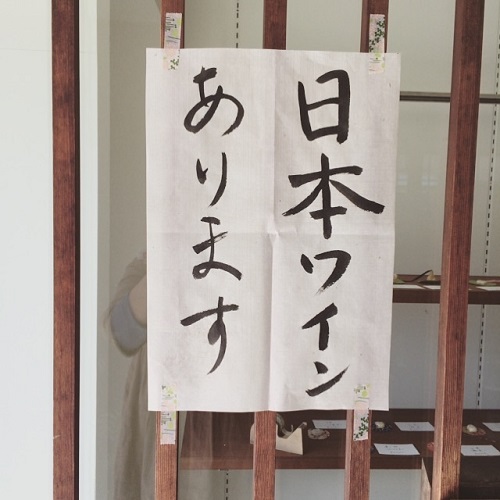 日本ワイン
あります